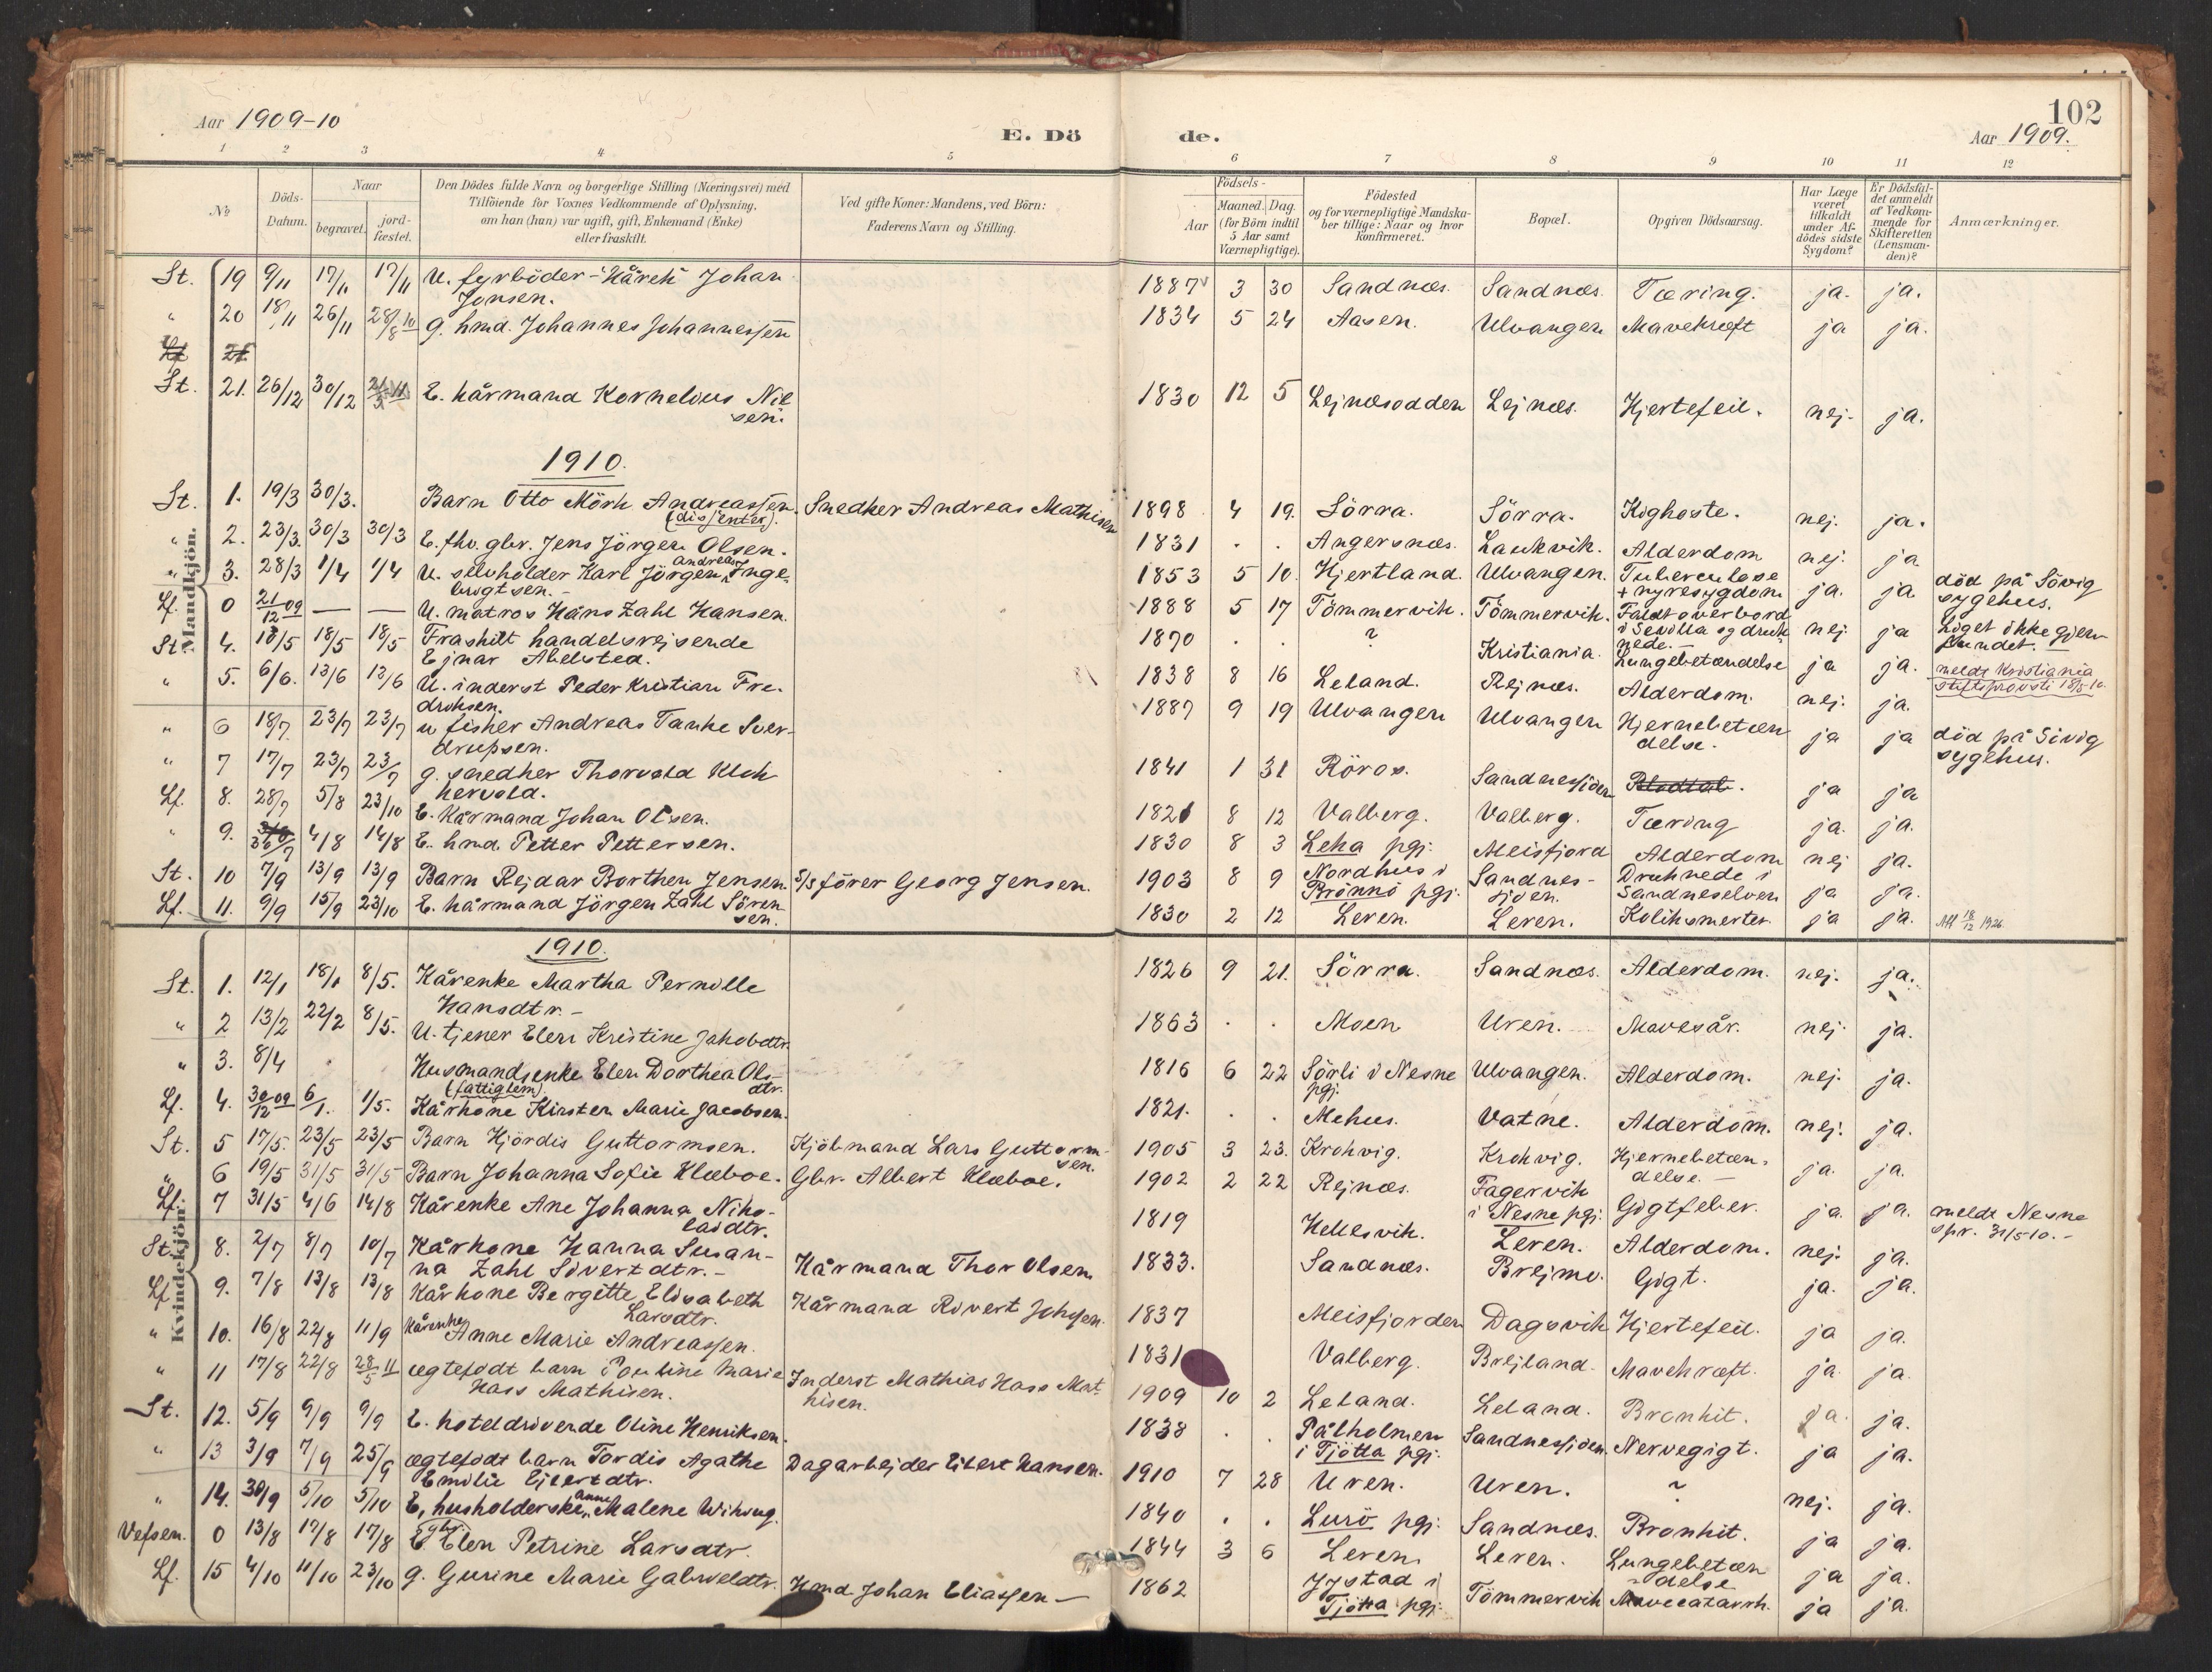 Aar 1909-10
E. Döde.
102
Aar 1909.
1 2 3 4 5 6 7 8 9 10 11 12
№
Döds-Datum.
Naar
begravet.
jordfæstet.
Den Dödes fulde Navn og borgerlige Stilling (Næringsvei) med
Tilföiende for Voxnes Vedkommende af Oplysning,
om han (hun) var ugift, gift, Enkemand (Enke)
eller fraskilt.
Ved gifte Koner: Mandens, ved Börn:
Faderens Navn og Stilling.
Födsels-
Aar
Maaned. Dag.
(for Börn indtil
5 Aar samt
Værnepligtige).
Födested
og for værnepligtige Mandska-
ber tillige: Naar og hvor
konfirmeret.
Bopæl.
Opgiven Dödsaarsag.
Har Læge
været
tilkaldt
under Af-
dödes sidste
Sygdom?
Er Dödsfal-
det anmeldt
af Vedkom-
mende for
Skifteretten
(Lensman-
den)?
Anmærkninger.
Mandkjön.
St. 19 9/11 17/11 17/11 U. fyrböder Hårek Johan Jonsen. 1887 3 30 Sandnæs. Sandnæs. Tæring. ja. ja.
" 20 18/11 26/11 28/8 10 g. hmd. Johannes Johannessen 1834 5 24 Aasen. Ulvangen Mavekræft ja ja.
Lf 21.
St. 21. 26/12 30/12 E. kårmand Kornelius Nilsen. 1830 12 5 Lejnæsodden Lejnæs. Hjertefeil. nej. ja.
1910.
St. 1. 19/3 30/3. Barn Otto Mörk Andreassen. (dissenter). Snedker Andreas Mathisen 1898 4 19. Sörra. Sörra. Kighoste. nej. ja.
" 2. 23/3. 30/3 30/3 E. fhv. gbr. Jens Jörgen Olsen. 1831 . . Angersnæs. Laukvik. Alderdom nej. ja
" 3. 28/3 1/4 1/4 U. selvholder Karl Jörgen Andreas Ingebrigtsen. 1853 5 10. Hjertland. Ulvangen. Tuberculose + nyresygdom ja. ja. död på Sövig sygehus.
Lf. 0 21/12 09 — — U. matros Hans Zahl Hansen. 1888 5 17 Tömmervik. Tömmervik. Faldt overbord i Sevilla og druknede. nej. ja Liget ikke gjenfundet.
St. 4. 18/5 18/5 Fraskilt handelsrejsende Ejnar Abelsted. 1870 . . ? Kristiania. Lungebetændelse ja ja. meldt Kristiania stiftsprovsti 18/5 10.
" 5. 6/6. 13/6 13/6 U. inderst Peder Kristian Fredriksen. 1838 8 16 Leland. Rejnæs. Alderdom. nej. ja.
" 6 18/7. 23/7 23/7 u fisker Andreas Tanke Sverdrupsen. 1887 9 19 Ulvangen Ulvangen Hjernebetændelse. ja ja död på Sövig sygehus.
" 7 17/7 23/7 23/7 g. snedker Thorvald Klokkervold. 1841 1 31 Röros. Sandnessjöen ja ja
Lf. 8. 28/7 5/8 23/10 E. Kårmand Johan Olsen. 1821 8 12 Valberg. Valberg. Tæring ja. ja.
" 9. 4/8 14/8 E. hmd. Petter Pettersen. 1830 8 3 Leka pgj. Meisfjord Alderdom nej ja.
St. 10 7/9 13/9 13/9 Barn Rejdar Borthen Jensen. S/S förer Georg Jensen. 1903 8 9 Nordhus i Brönnö pgj. Sandnessjöen. Druknede i Sandneselven ja ja.
Lf. 11. 9/9 15/9 23/10 E. kårmand Jörgen Zahl Sörensen. 1830 2 12 Leren. Leren. Koliksmerter. ja ja. 18/12 1926.
1910.
Kvindekjön.
St. 1. 12/1 18/1 8/5. Kårenke Martha Pernille Hansdtr. 1826 9 21. Sörra. Sandnæs. Alderdom. nej. ja.
" 2 13/2 22/2 8/5. U. tjener Elen Kristine Jakobdtr. 1863 . . Moen Uren. Mavesår. nej. ja.
" 3. 8/4 . . Husmandsenke Elen Dorthea Olsdtr. (fattiglem) 1816 6 22 Sörli i Nesne pgj. Ulvangen. Alderdom. nej. ja.
Lf. 4. 30/12 09 6/1. 1/5. Kårkone Kirsten Marie Jacobsen. 1821. . . Mehus. Vatne. Alderdom. nej. ja.
St. 5 17/5. 23/5 23/5 Barn Hjördis Guttormsen. Kjöbmand Lars Guttormsen. 1905 3 23. Krokvig. Krokvig. Hjernebetændelse. ja. ja.
" 6 19/5 31/5 31/5 Barn Johanna Sofie Klæboe. Gbr. Albert Klæboe. 1902 2 22 Rejnæs. Fagervik i Nesne pgj. Gigtfeber. ja. ja. meldt Nesne spr. 31/5 10.
Lf. 7 31/5 4/6 14/8 Kårenke Ane Johanna Nikolaidtr. 1819 Hellesvik. Leren. Alderdom. nej. ja.
St. 8. 2/7 8/7 10/7 Kårkone Hanna Susanna Zahl Sivertdtr. Kårmand Thor Olsen 1833. Sandnæs. Brejmo. Gigt. ja. ja.
Lf 9. 7/8 13/8 13/8 Kårkone Bergitte Elisabeth Larsdtr. Kårmand Rivert Johnsen. 1837 Meisfjorden Dagsvik Hjertefeil. ja ja.
" 10. 16/8 22/8 11/9 Kårenke Anne Marie Andreassen. 1831 Valberg. Brejland. Mavekræft. ja. ja.
" 11 17/8 22/8 28/5 11 ægtefödt barn Pouline Marie Hass Mathisen. Inderst Mathias Hass Mathisen. 1909 10 2 Leland. Leland. Bronkit. ja. ja.
St. 12. 5/9 9/9 9/9 E. hoteldrivende Oline Henriksen. 1838 . . Pålholmen i Tjötta pgj. Sandnessjöen. Nervegigt. ja ja.
" 13 3/9 7/9 25/9 ægtefödt barn Tordis Agathe Emilie Ejlertdtr. Dagarbejder Eilert Hansen. 1910 7 28 Uren. Uren. ? nej. ja.
" 14. 30/9 5/10 5/10 E, husholderske Anne Malene Wiking. 1840 . . Lurö pgj. Sandnæs. Bronkit. ja ja.
Vefsen. 0 13/8 17/8 17/8 E gbr. Elen Petrine Larsdtr. 1844 3 6 Leren Leren. Lungebetændelse ja ja.
Lf. 15 4/10 11/10 23/10 g. Gurine Marie Gabrieldtr. Hmd Johan Eliassen — 1862 Igstad i Tjötta pgj. Tömmervik Mavecatarrh. ja ja.